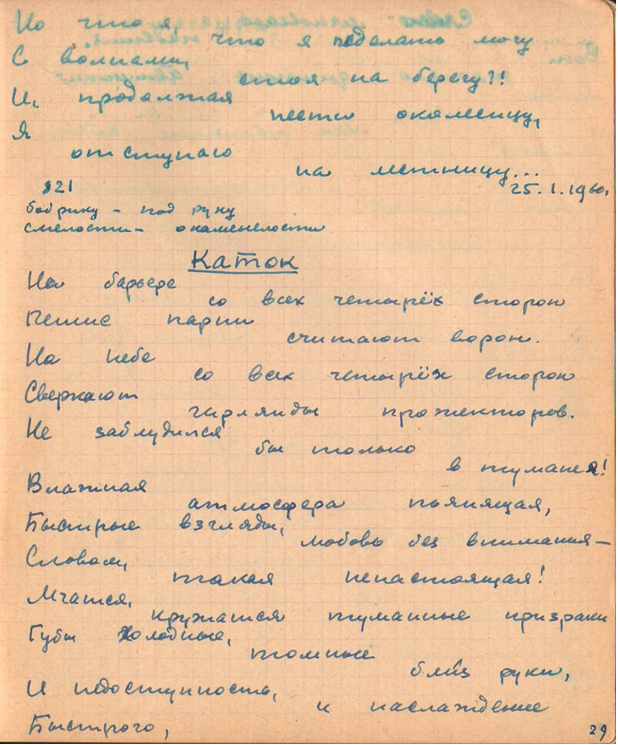 Но что я, что я поделать могу
С волнами,
стоя на берегу?!
И, продолжая
нести околесицу,
Я
отступаю
на лестницу...
25.1.1960.
821
бобрику – под руку
смелости – окаменелости
Каток
На барьере
со всех четырёх сторон
Пешие парни
считают ворон.
На небе
со всех четырёх сторон
Сверкают
гирлянды прожекторов.
Не заблудился
бы только
в тумане я!
Влажная
атмосфера пьянящая,
Быстрые взгляды,
любовь без внимания –
Словом,
такая ненастоящая!
Мчатся,
кружатся туманные призраки
Губы холодные,
томные
близ руки,
И недоступность,
и наслаждение
Быстрого,
29